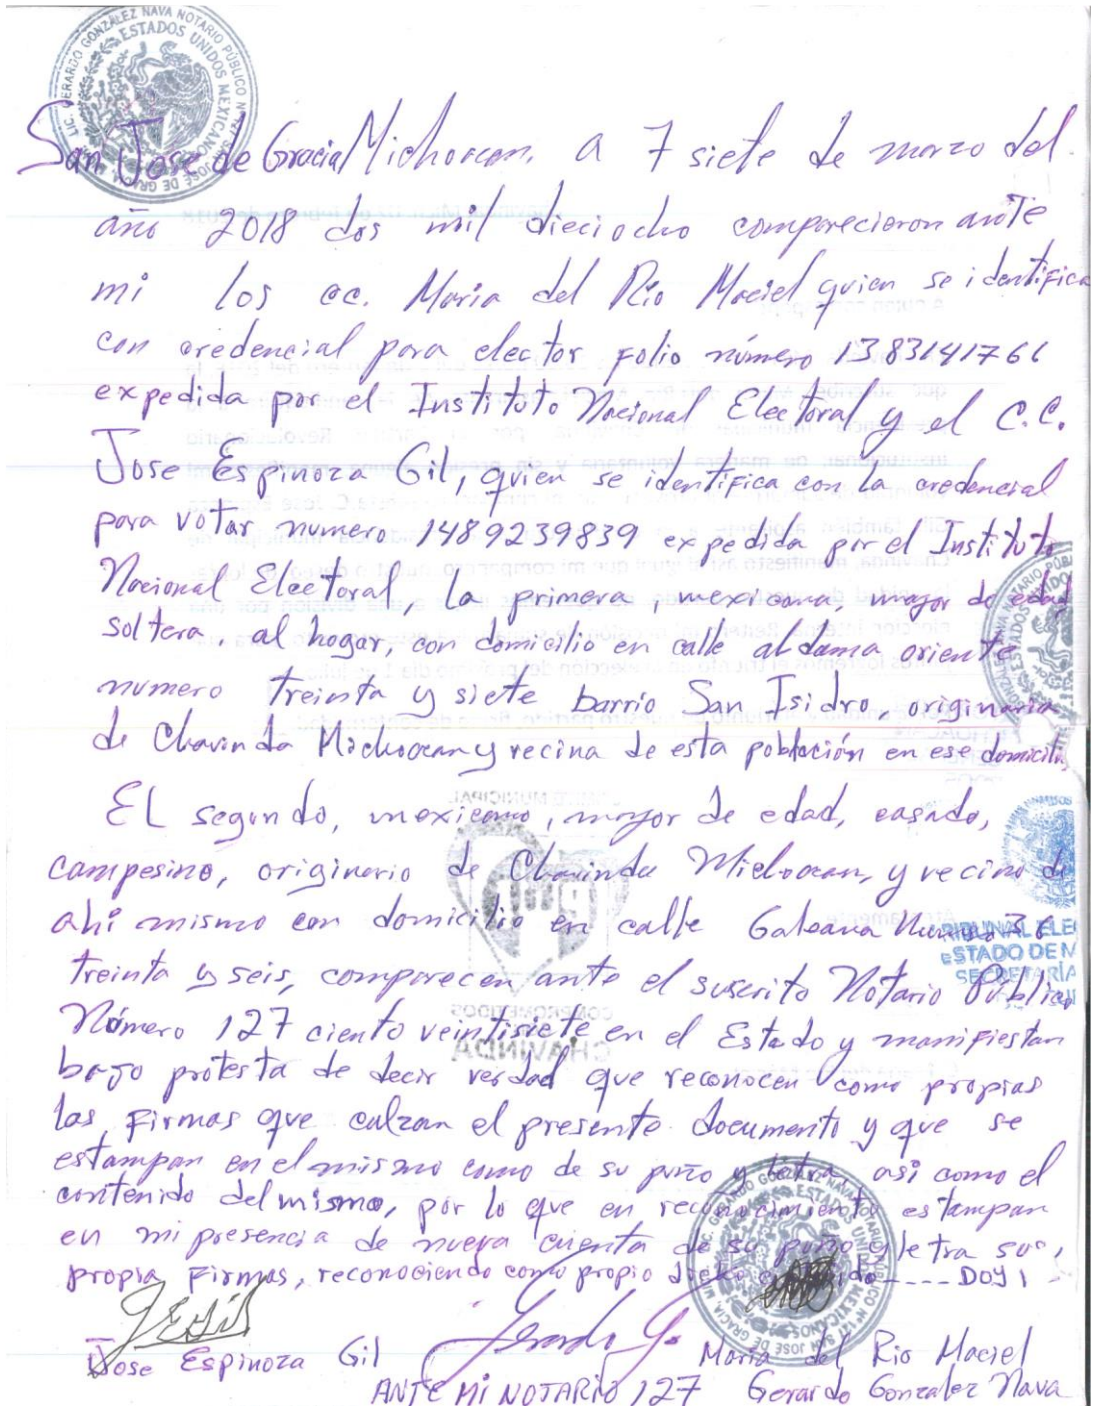 LIC. GERARDO GONZÁLEZ NAVA NOTARIO PÚBLICO Nº 127 SAN JOSÉ DE GRACIA, MICH.
ESTADOS UNIDOS MEXICANOS
San Jose de Gracia Michoacan. a 7 siete de marzo del
año 2018 dos mil dieciocho comparecieron ante
mi los cc. Maria del Rio Maciel quien se identifica
con credencial para elector folio número 1383141766
expedida por el Instituto Nacional Electoral y el C.C.
Jose Espinoza Gil, quien se identifica con la credencial
para votar numero 1489239839 expedida por el Instituto
Nacional Electoral, La primera, mexicana, mayor de edad
soltera, al hogar, con domicilio en calle aldama oriente
numero treinta y siete barrio San Isidro, originaria
de Chavinda Michoacan y vecina de esta población en ese domicilio,
EL segundo, mexicano, mayor de edad, casado,
campesino, originario de Chavinda Michoacan, y vecino de
ahi mismo con domicilio en calle Galeana Numero 36
TRIBUNAL ELE
ESTADO DE M
SECRETARÍA
treinta y seis, comparecen ante el suscrito Notario Publico
Número 127 ciento veintisiete en el Estado y manifiestan
bajo protesta de decir verdad que reconocen como propias
las firmas que calzan el presente documento y que se
estampan en el mismo como de su puño y letra, asi como el
contenido del mismo, por lo que en reconocimiento estampan
en mi presencia de nueva cuenta de su puño y letra sus
propia firmas, reconociendo como propio dicho contenido ---- DOY
Jose Espinoza Gil Maria del Rio Maciel
ANTE MI NOTARIO 127 Gerardo Gonzalez Nava